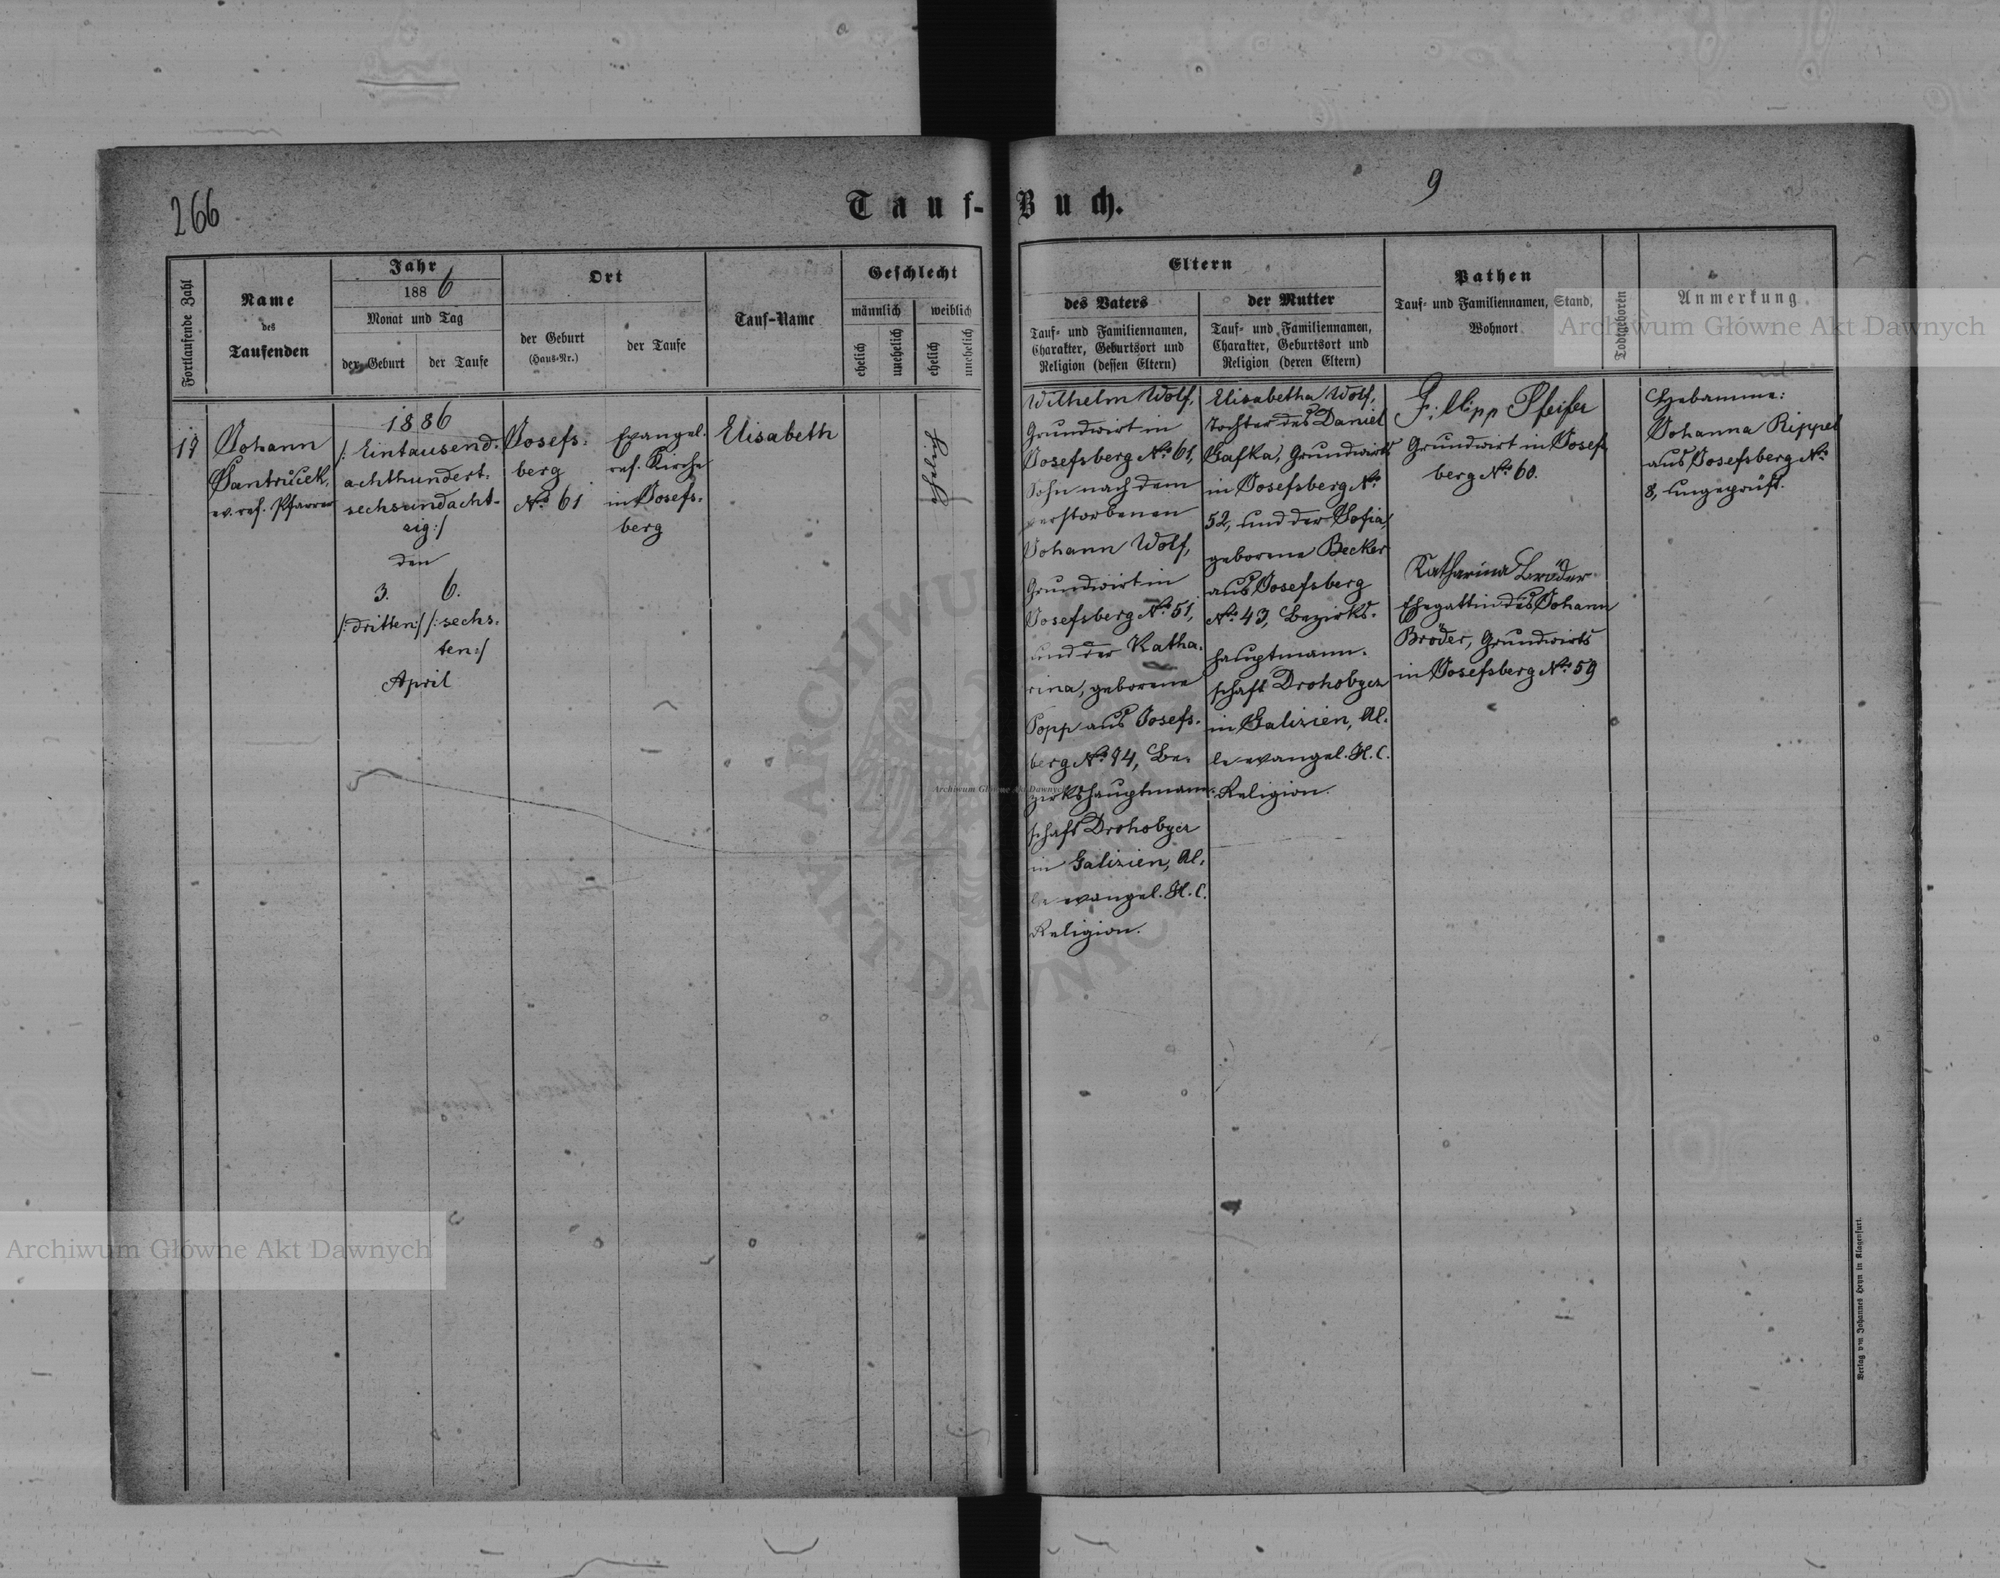 266
9
Tauf-Buch.
Fortlaufende Zahl
Name
des
Taufenden
Jahr
1886
Monat und Tag
der Geburt
der Taufe
Ort
der Geburt
(Haus-Nr.)
der Taufe
Tauf-Name
Geschlecht
männlich
weiblich
ehelich
unehelich
ehelich
unehelich
Eltern
des Vaters
Tauf- und Familiennamen,
Charakter, Geburtsort und
Religion (dessen Eltern)
der Mutter
Tauf- und Familiennamen,
Charakter, Geburtsort und
Religion (deren Eltern)
Pathen
Tauf- und Familiennamen, Stand,
Wohnort
Todtgeboren
Anmerkung
Johann
ev. ref. Pfarrer
1886
/: Eintausend-
achthundert-
sechsundacht-
zig :/
den
3. 6.
/: dritten :/ /: sechs-
ten :/
April
Josefs-
berg
No 61
Evangel.
ref. Kirche
in Josefs-
berg
Elisabeth
ehelich
Wilhelm Wolf,
Grundwirt in
Josefsberg No 61,
Sohn nach dem
verstorbenen
Johann Wolf,
Grundwirt in
Josefsberg No 51,
und der Katha-
rina, geborene
Popp aus Josefs-
berg No 94, Be-
zirkshauptmann-
schaft Drohobycz
in Galizien, Al-
le evangel. H. C.
Religion.
Elisabetha Wolf,
Tochter des Daniel
Gafka, Grundwirts
in Josefsberg No
52, und der Sofia,
geborene Becker
aus Josefsberg
No 43, Bezirks-
hauptmann-
schaft Drohobycz
in Galizien, Al-
le evangel. H. C.
Religion.
Filipp Pfeifer
Grundwirt in Josefs-
berg No 60.
Katharina Bröder
Ehegattin des Johann
Bröder, Grundwirts
in Josefsberg No 59
Hebamme:
Johanna Rippel
aus Josefsberg No
8, ungeprüft.
Verlag von Johannes Heyn in Klagenfurt.
Archiwum Główne Akt Dawnych
Archiwum Główne Akt Dawnych
Archiwum Główne Akt Dawnych